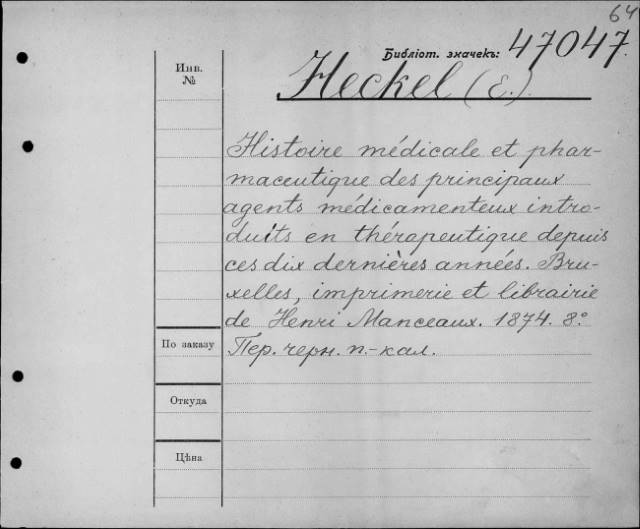 64
Библіот. значекъ: 47047.
Инв.
№
Heckel (E.)
Histoire médicale et phar-
maceutique des principaux
agents médicamenteux intro-
duits en thérapeutique depuis
ces dix dernières années. Bru-
xelles, imprimerie et librairie
de Henri Manceaux. 1874. 8.°
По заказу
Пер. черн. п.-кал.
Откуда
Цѣна